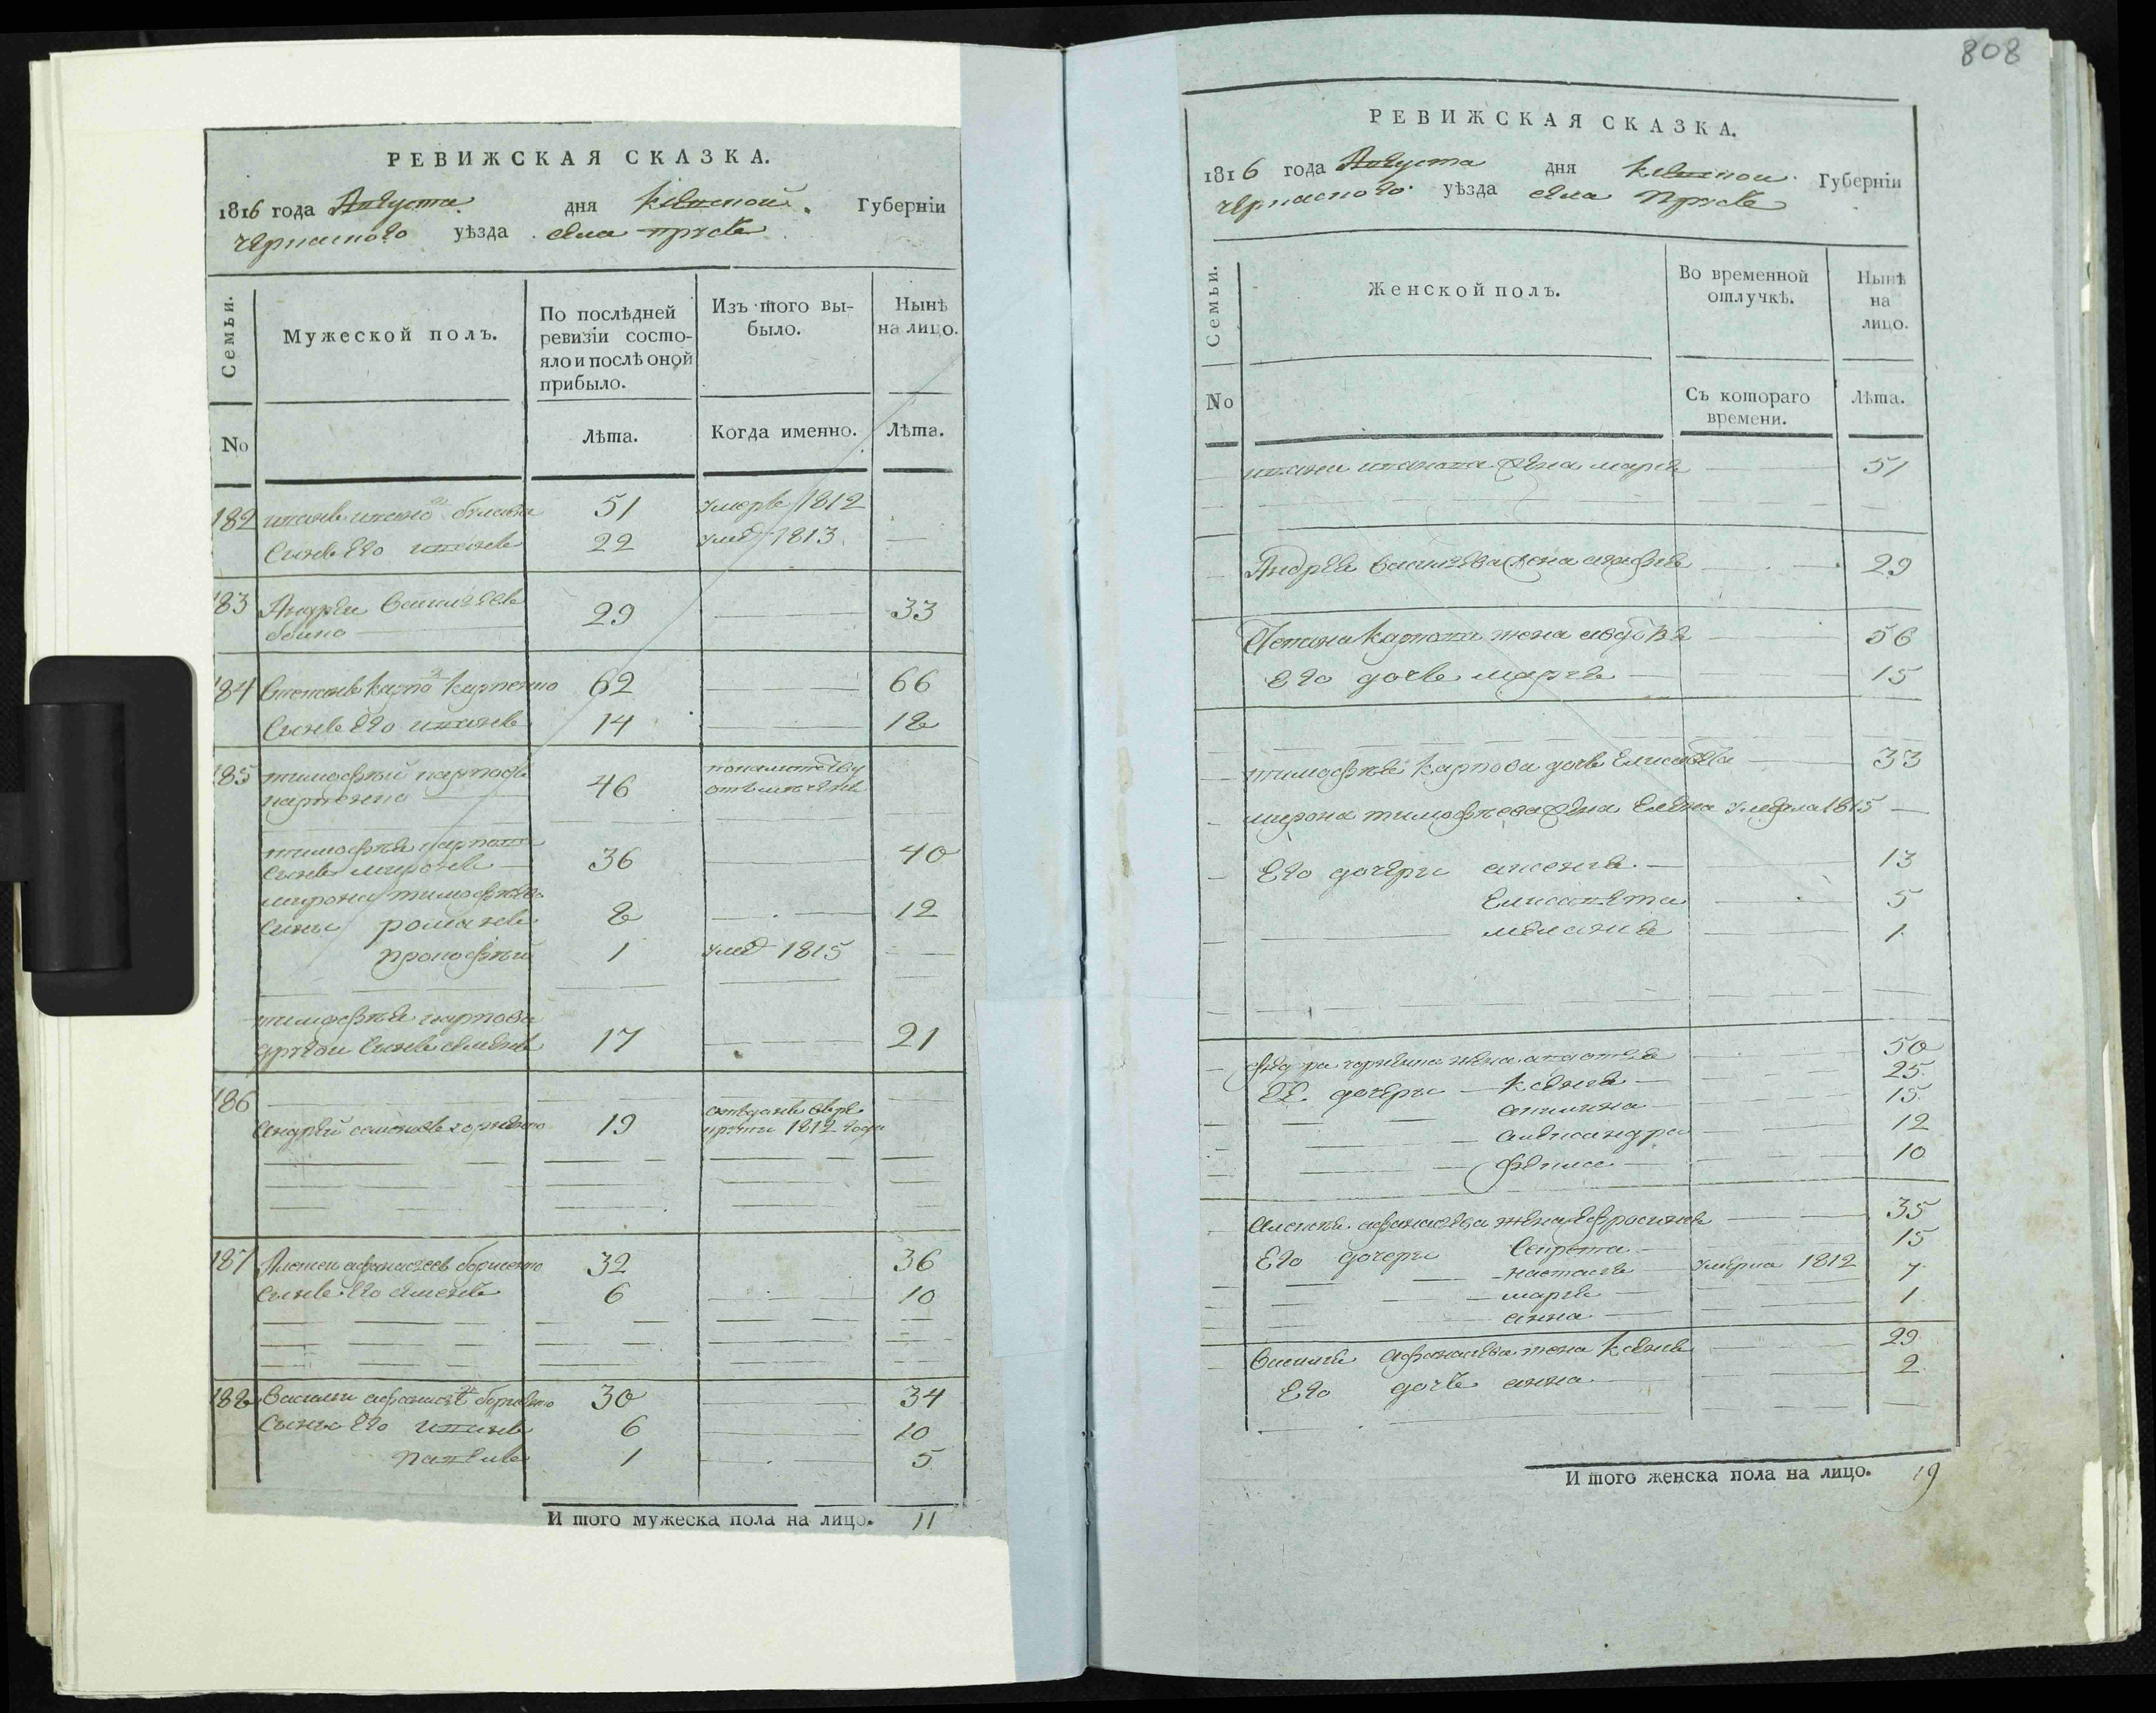 808
РЕВИЖСКАЯ СКАЗКА.
1816 года Августа дня Киевской Губерніи
черкаского уѣзда села прусъ
Семьи.
Мужеской полъ.
По послѣдней ревизіи состо-
яло и послѣ оной
прибыло.
Изъ того вы-
было.
Нынѣ
на лицо.
No
Лѣта.
Когда именно.
Лѣта.
182 иванъ ивано 51 умеръ 1812
Сынъ его иванъ 22 умер 1813
183 Андрей Василіевъ 29 33
184 Степанъ карпов карпенко 62 66
Сынъ его иванъ 14 18
185 тимофѣй карповъ
карпенко 46
тимофѣя карпова
Сынъ миронъ 36 40
мирона тимофѣева
Сыны романъ 8 12
прокофѣй 1 умер 1815
тимофѣя карпова
другой Сынъ семенъ 17 21
186
андрѣй 19 1812 года
187 Алексей афанасіевъ борисенко 32 36
Сынъ его семенъ 6 10
188 Василий афанасіев борисенко 30 34
Сыны его иванъ 6 10
павелъ 1 5
И того мужеска пола на лицо. 11
РЕВИЖСКАЯ СКАЗКА.
1816 года Августа дня Киевской Губерніи
черкаского уѣзда села Прусъ
Семьи.
Женской полъ.
Во временной
отлучкѣ.
Нынѣ
на
лицо.
No
Съ котораго
времени.
Лѣта.
ивана иванова жена марія 51
Андрея василіева жена агафія 29
Степана карпова жена 56
Его дочь марія 15
тимофѣя карпова дочь Елисавета 33
мирона тимофѣева жена Елена умерла 1815
Его дочери ксенія 13
Елисавета 5
меланія 1
жена 50
Ее дочери ксенія 25
акилина 15
александра 12
фекла 10
алексѣя афанасіева жена Ефросинія 35
Его дочери 15
настасія умерла 1812
марія 7
анна 1
Василія афанасіева жена ксенія 29
Его дочь анна 2
И того женска пола на лицо. 19